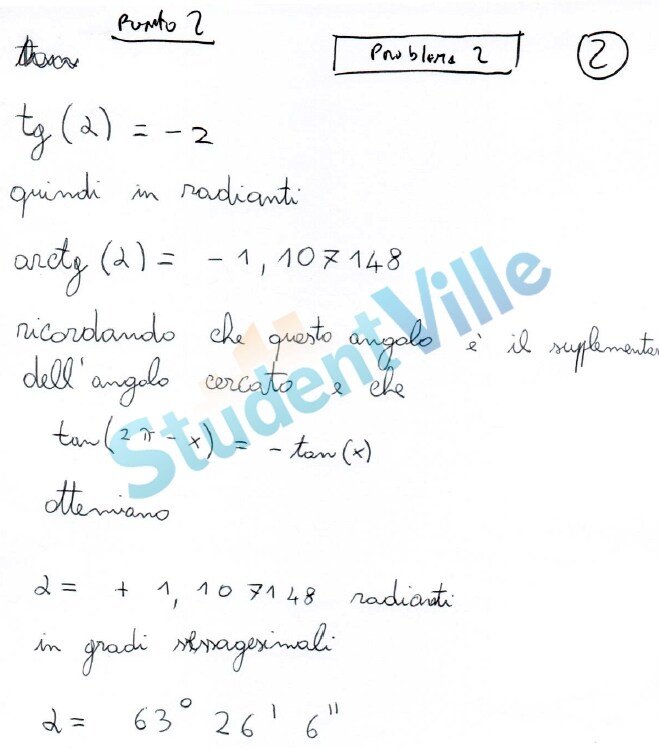 Punto 2
Problema 2
2
tg (α) = - 2
quindi in radianti
arctg (α) = - 1,107148
ricordando che questo angolo è il supplementar
dell'angolo cercato e che
tan(2π - x) = - tan(x)
otteniamo
α = + 1,107148 radianti
in gradi sessagesimali
α = 63° 26' 6"
StudentVille